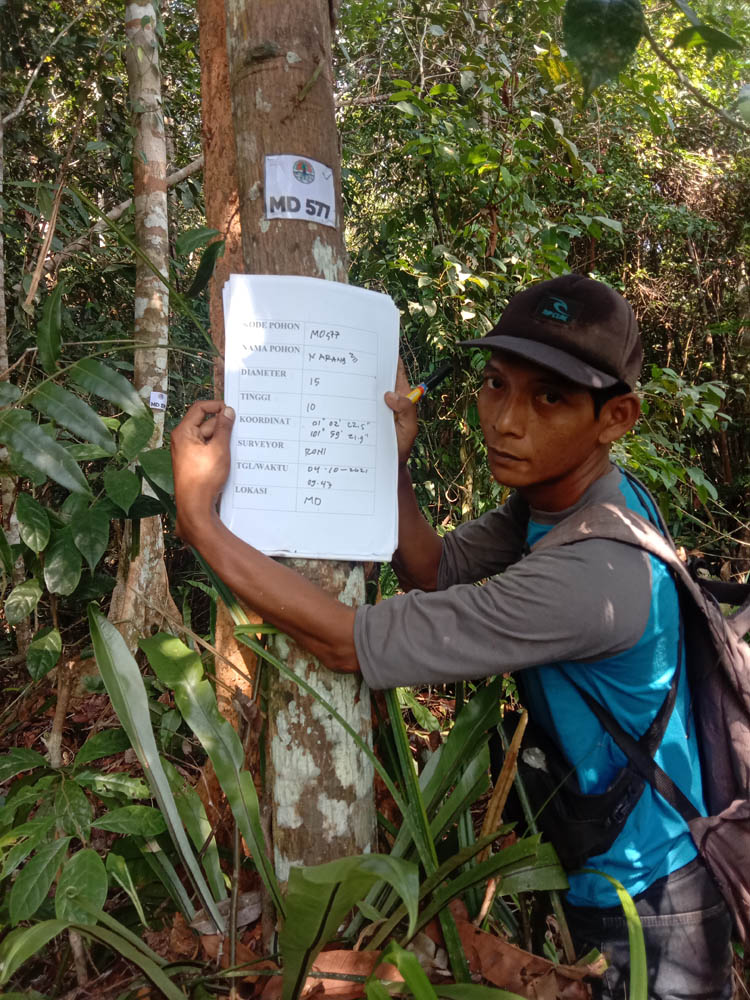 MD 577
KODE POHON MD577
NAMA POHON
DIAMETER 15
TINGGI 10
KOORDINAT 01° 02' 22.5"
101° 59' 21.9"
SURVEYOR RONI
TGL/WAKTU 04-10-2021
09:47
LOKASI MD
RIP CURL